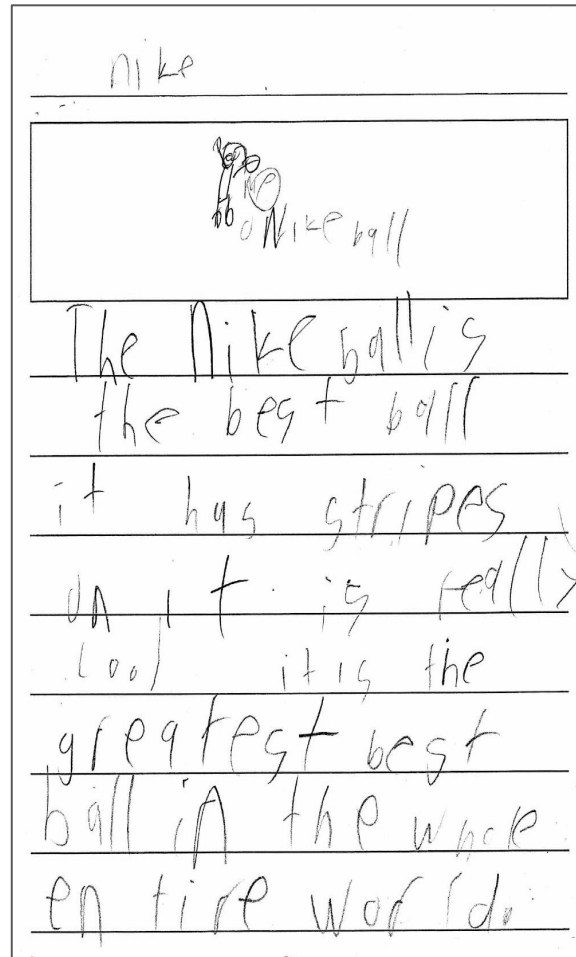 nike
me
Nike ball
The Nike ball is
the best ball
it has stripes
on it. is really
cool it is the
greatest best
ball in the whole
entire world.